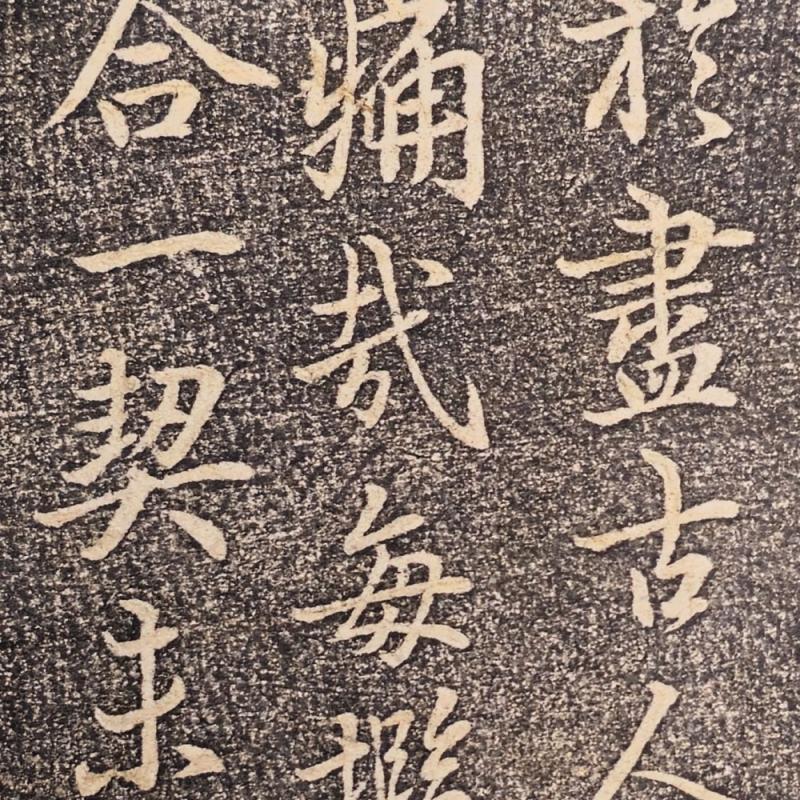 於盡古人
痛哉每攬
合一契未